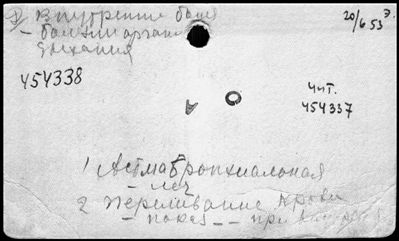 Внутренние бол
20/6 53
- болезни орган
дыхания
454338
Чит.
454337
1 Астма бронхиальная
- леч
2 Переливание крови
- показ - - при